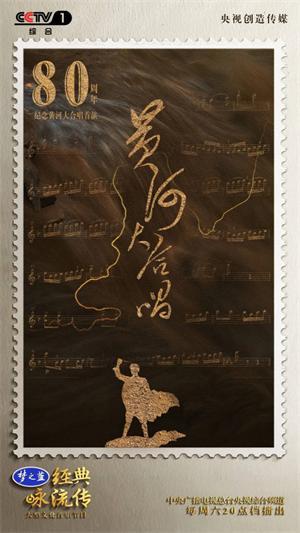 CCTV 1
综合
央视创造传媒
80周年
纪念黄河大合唱首演
黄河大合唱
梦之蓝
经典
咏流传
大型文化音乐节目
中央广播电视总台央视综合频道
每周六20点档播出